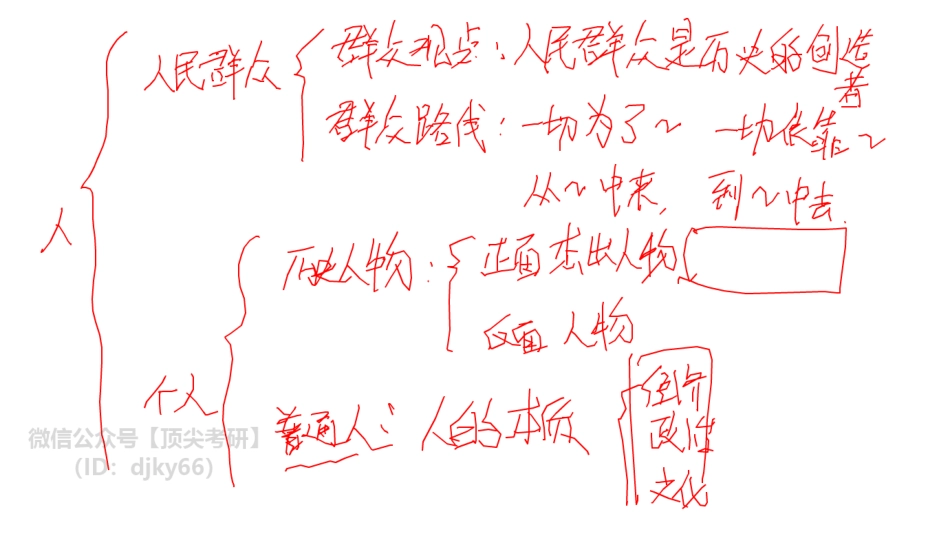 人
人民群众
群众观点：人民群众是历史的创造者
群众路线：一切为了～ 一切依靠～
从～中来，到～中去.
个人
历史人物：
正面杰出人物
反面人物
普通人：人的本质
政治
文化
微信公众号【顶尖考研】
（ID：djky66）